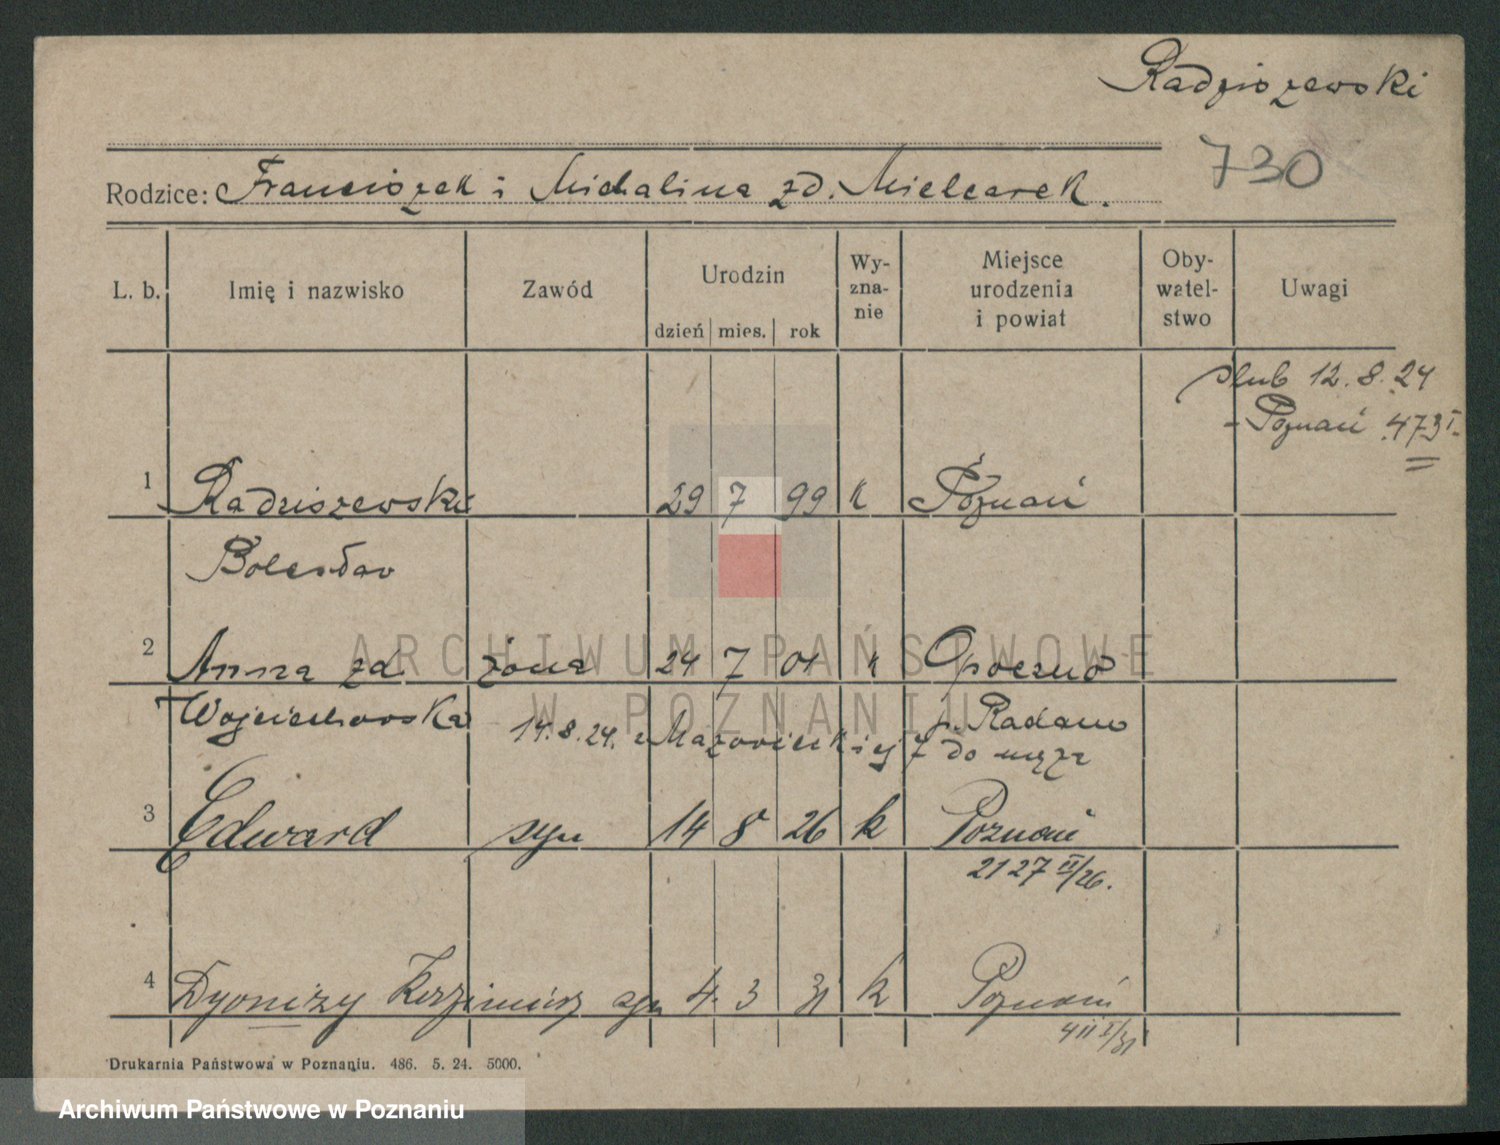 Radziszewski
730
Rodzice: Franciszek i Michalina zd. Mielcarek.
L. b. Imię i nazwisko Zawód Urodzin dzień mies. rok Wy-zna-nie Miejsce urodzenia i powiat Oby-watel-stwo Uwagi
ślub 12.8.24
- Poznań 473 I.
1 Radziszewski 29 7 99 k Poznań
Bolesław
2 Anna zd żona 24 7 01 k Opoczno
Wojciechowska p. Radom
14.8.24. z Mazowieckiej 7 do męża
3 Edward syn 14 8 26 k Poznań
2127 II/26.
4 Dyonizy Kazimierz syn 4. 3 31 k Poznań
411 I/31
Drukarnia Państwowa w Poznaniu. 486. 5. 24. 5000.
ARCHIWUM PAŃSTWOWE
W POZNANIU
Archiwum Państwowe w Poznaniu